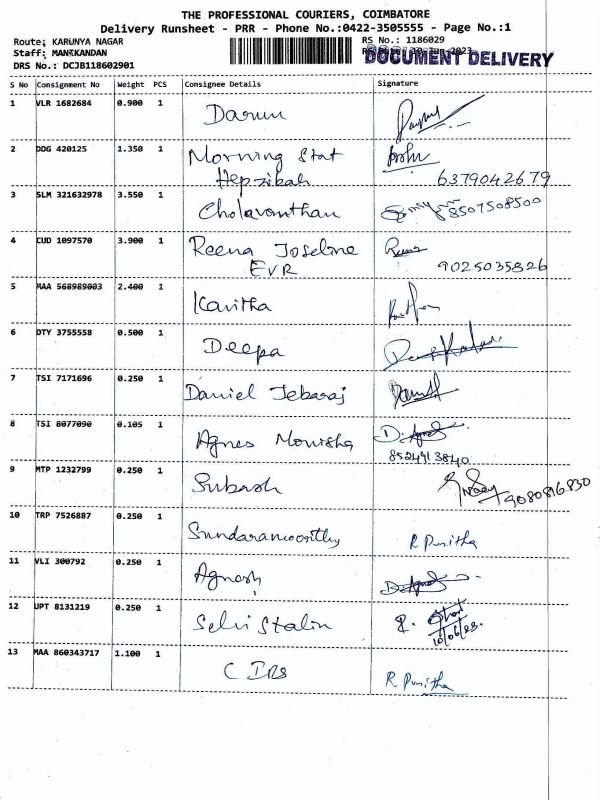 THE PROFESSIONAL COURIERS, COIMBATORE
Delivery Runsheet - PRR - Phone No.:0422-3505555 - Page No.:1
Route: KARUNYA NAGAR RS No.: 1186029
Staff: MANIKANDAN 10-Jun-2023
DOCUMENT DELIVERY
DRS No.: DCJB118602901
S No Consignment No Weight PCS Consignee Details Signature
1 VLR 1682684 0.900 1 Darun
2 DDG 420125 1.350 1 Morning Stat
Hepzibah 6379042679
3 SLM 321632978 3.550 1 Cholavanthan 8507508500
4 CUD 1097570 3.900 1 Reena Joseline
EVR 9025035826
5 MAA 568989003 2.400 1 Kavitha
6 DTY 3755558 0.500 1 Deepa
7 TSI 7171696 0.250 1 Daniel Jebaraj
8 TSI 8077090 0.105 1 Agnes Monisha D. Agnes
8524913840
9 MTP 1232799 0.250 1 Subash 9080816830
10 TRP 7526887 0.250 1 Sundaramoorthy R Punitha
11 VLI 300792 0.250 1 Agnesh
12 UPT 8131219 0.250 1 Selvi Stalin
10/06/23.
13 MAA 860343717 1.100 1 C IRS R Punitha